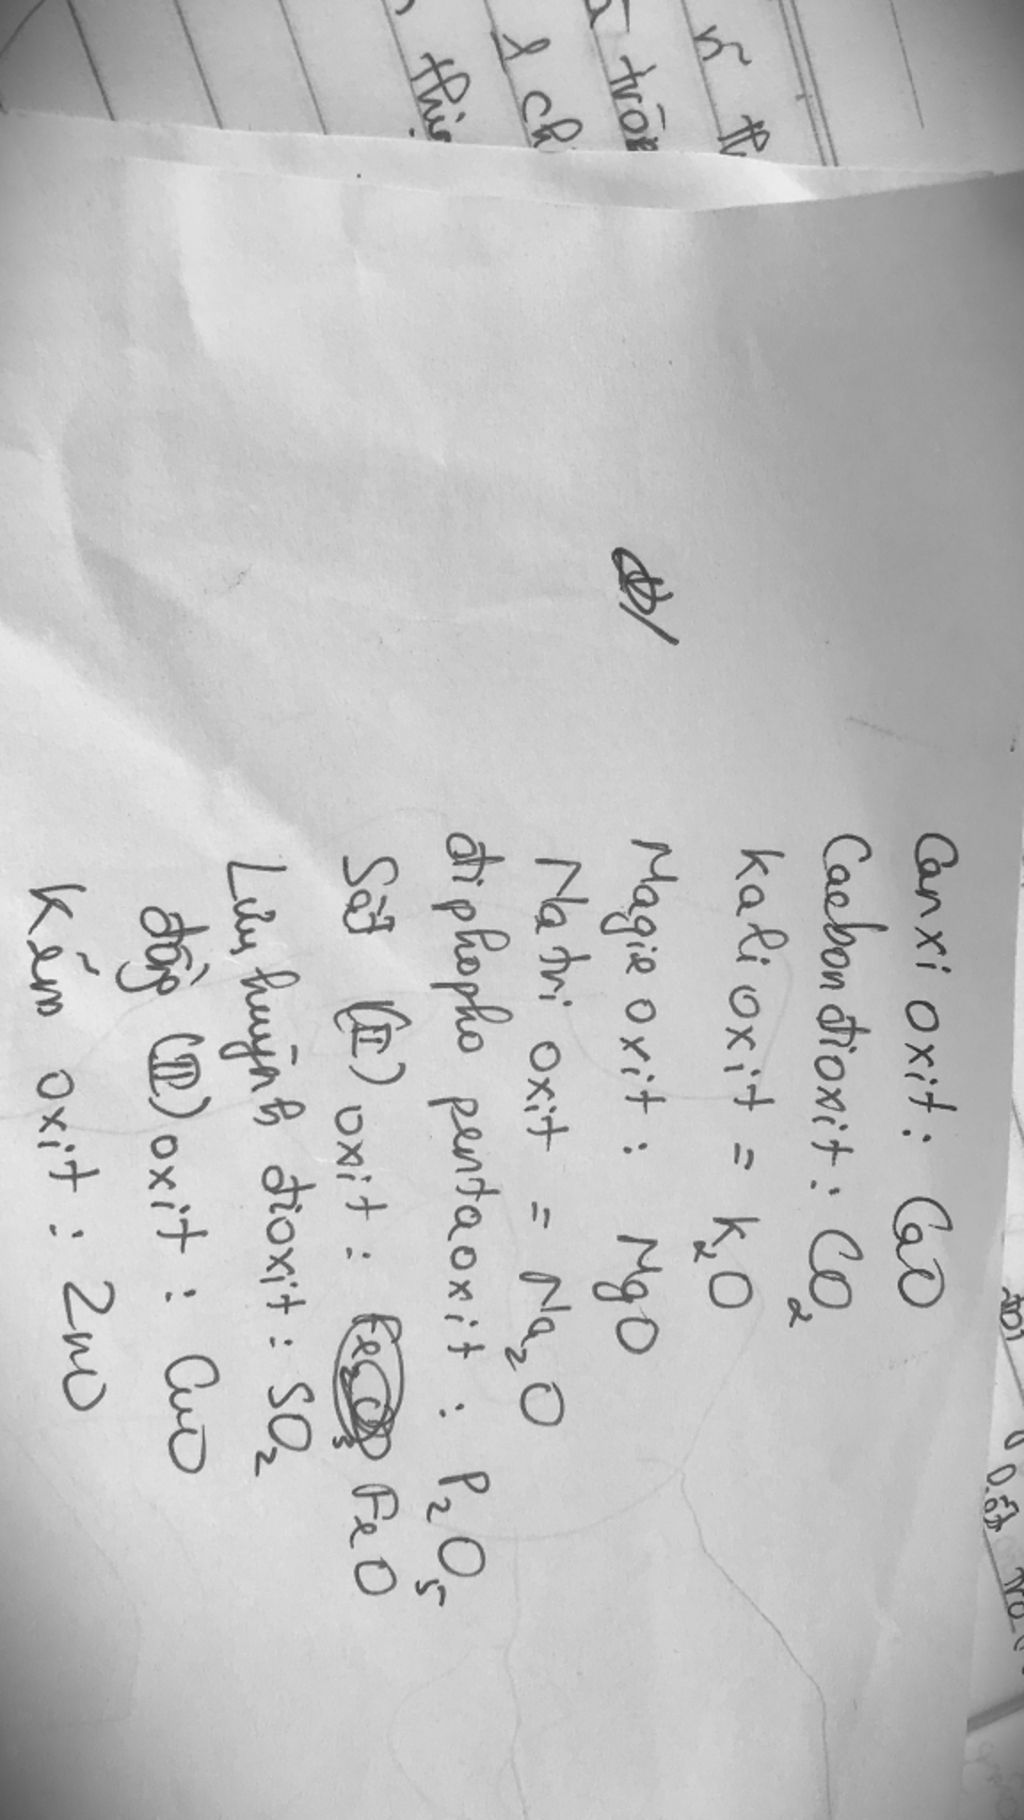 Canxi oxit: CaO
Cacbon đioxit: CO2
Kali oxit = K2O
Magie oxit: MgO
Natri oxit = Na2O
điphopho pentaoxit: P2O5
Sắt (II) oxit: FeO
Lưu huỳnh đioxit: SO2
đồng (II) oxit: CuO
Kẽm oxit: ZnO